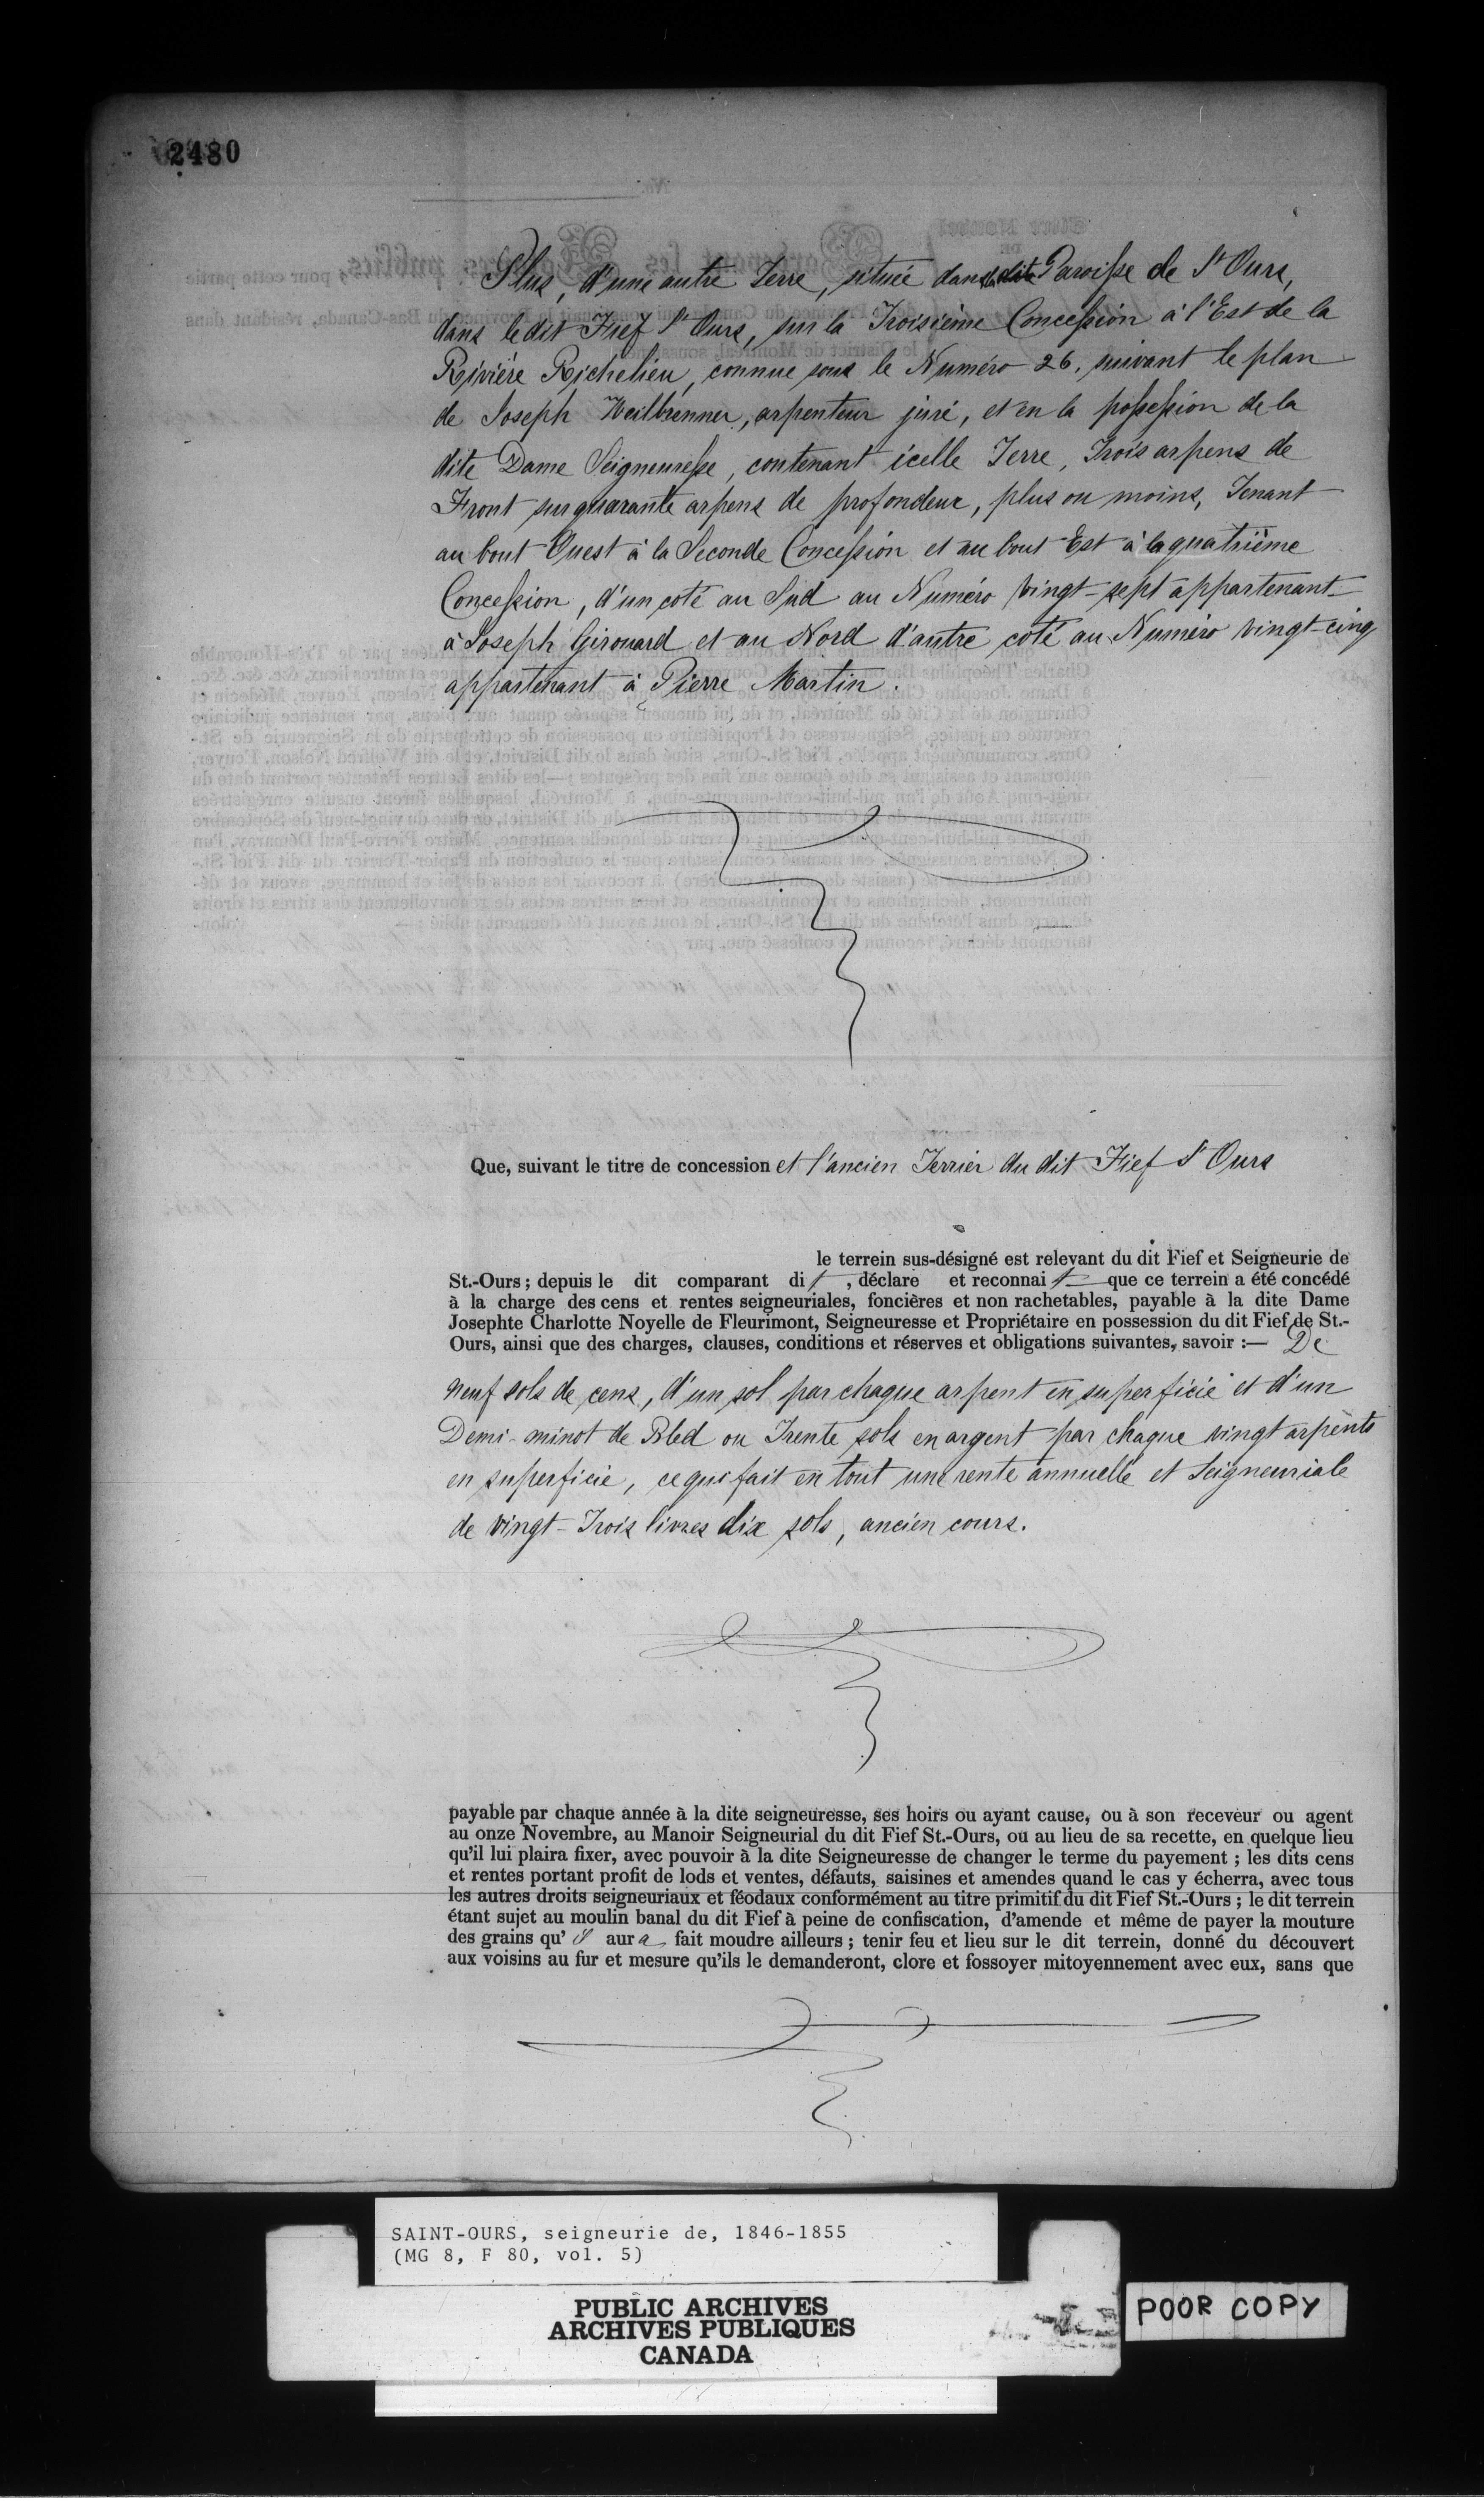 2480
Plus, d'une autre Terre, située dans la dite Paroisse de St Ours,
dans le dit Fief St Ours, sur la Troisième Concession à l'Est de la
Rivière Richelieu, connue sous le Numéro 26, suivant le plan
de Joseph Weilbrenner, arpenteur juré, et en la possession de la
dite Dame Seigneuresse, contenant icelle Terre, Trois arpens de
Front sur quarante arpens de profondeur, plus ou moins, Tenant
au bout Ouest à la Seconde Concession et au bout Est à la quatrième
Concession, d'un coté au Sud au Numéro vingt-sept appartenant
à Joseph Girouard et au Nord d'autre coté au Numéro vingt-cinq
appartenant à Pierre Martin.
Que, suivant le titre de concession et l'ancien Terrier du dit Fief St Ours
le terrein sus-désigné est relevant du dit Fief et Seigneurie de
St.-Ours ; depuis le dit comparant dit , déclare et reconnait que ce terrein a été concédé
à la charge des cens et rentes seigneuriales, foncières et non rachetables, payable à la dite Dame
Josephte Charlotte Noyelle de Fleurimont, Seigneuresse et Propriétaire en possession du dit Fief de St.-
Ours, ainsi que des charges, clauses, conditions et réserves et obligations suivantes, savoir :— De
neuf sols de cens, d'un sol par chaque arpent en superficie et d'un
Demi-minot de Bled ou Trente sols en argent par chaque vingt arpents
en superficie, ce qui fait en tout une rente annuelle et Seigneuriale
de vingt-Trois livres dix sols, ancien cours.
payable par chaque année à la dite seigneuresse, ses hoirs ou ayant cause, ou à son receveur ou agent
au onze Novembre, au Manoir Seigneurial du dit Fief St.-Ours, ou au lieu de sa recette, en quelque lieu
qu'il lui plaira fixer, avec pouvoir à la dite Seigneuresse de changer le terme du payement ; les dits cens
et rentes portant profit de lods et ventes, défauts, saisines et amendes quand le cas y écherra, avec tous
les autres droits seigneuriaux et féodaux conformément au titre primitif du dit Fief St.-Ours ; le dit terrein
étant sujet au moulin banal du dit Fief à peine de confiscation, d'amende et même de payer la mouture
des grains qu'il aura fait moudre ailleurs ; tenir feu et lieu sur le dit terrein, donné du découvert
aux voisins au fur et mesure qu'ils le demanderont, clore et fossoyer mitoyennement avec eux, sans que
SAINT-OURS, seigneurie de, 1846-1855
(MG 8, F 80, vol. 5)
PUBLIC ARCHIVES
ARCHIVES PUBLIQUES
CANADA
POOR COPY